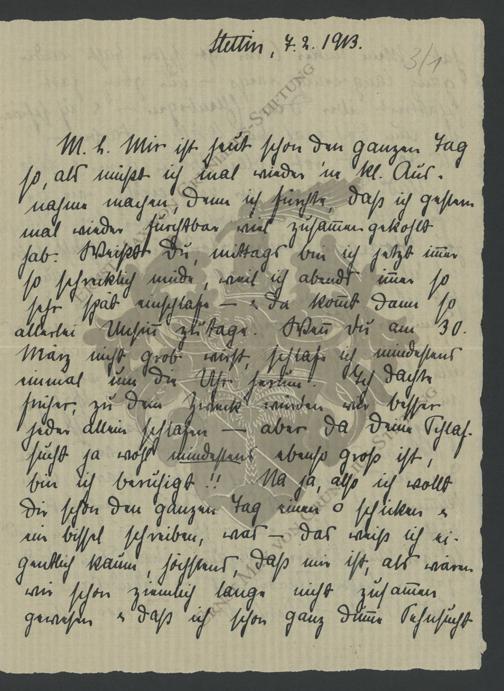 Stettin, 7.2.1913.
3/1
M. L. Mir ist heut schon den ganzen Tag
so, als müßt ich mal wieder 'ne kl. Aus-
nahme machen, denn ich fürchte, daß ich gestern
mal wieder furchtbar viel zusam̅engekohlt
hab. Weißt Du, mittags bin ich jetzt im̅er
so schrecklich müde, weil ich abends im̅er so
sehr spät einschlafe – & da kom̅t dann so
allerlei Unsinn zutage. Wen̅ Du am 30.
März nicht grob wirst, schlafe ich mindestens
einmal um die Uhr herum. Ich dachte
früher, zu dem Zweck würden wir besser
jeder allein schlafen – aber da Deine Schlaf-
sucht ja wohl mindestens ebenso groß ist,
bin ich beruhigt!! Na ja, also ich wollt
Dir schon den ganzen Tag einen o schicken &
ein bissel schreiben, was – das weiß ich ei-
gentlich kaum, höchstens, daß mir ist, als wären
wir schon ziemlich lange nicht zusam̅en
gewesen & daß ich schon ganz dum̅e Sehnsucht